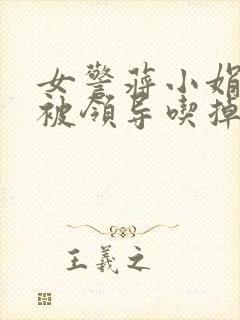 女警蒋小娟
被领导喫掉
王羲之